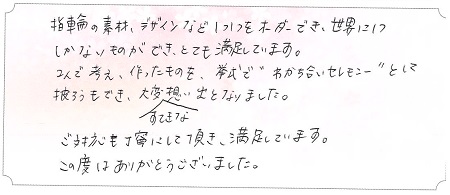 指輪の素材、デザインなど1つ1つをオーダーでき、世界に1つ
しかないものができ、とても満足しています。
2人で考え、作ったものを、挙式で"わかち合いセレモニー"として
披ろうもでき、大変想い出となりました。
すてきな
ご対応も丁寧にして頂き、満足しています。
この度はありがとうございました。